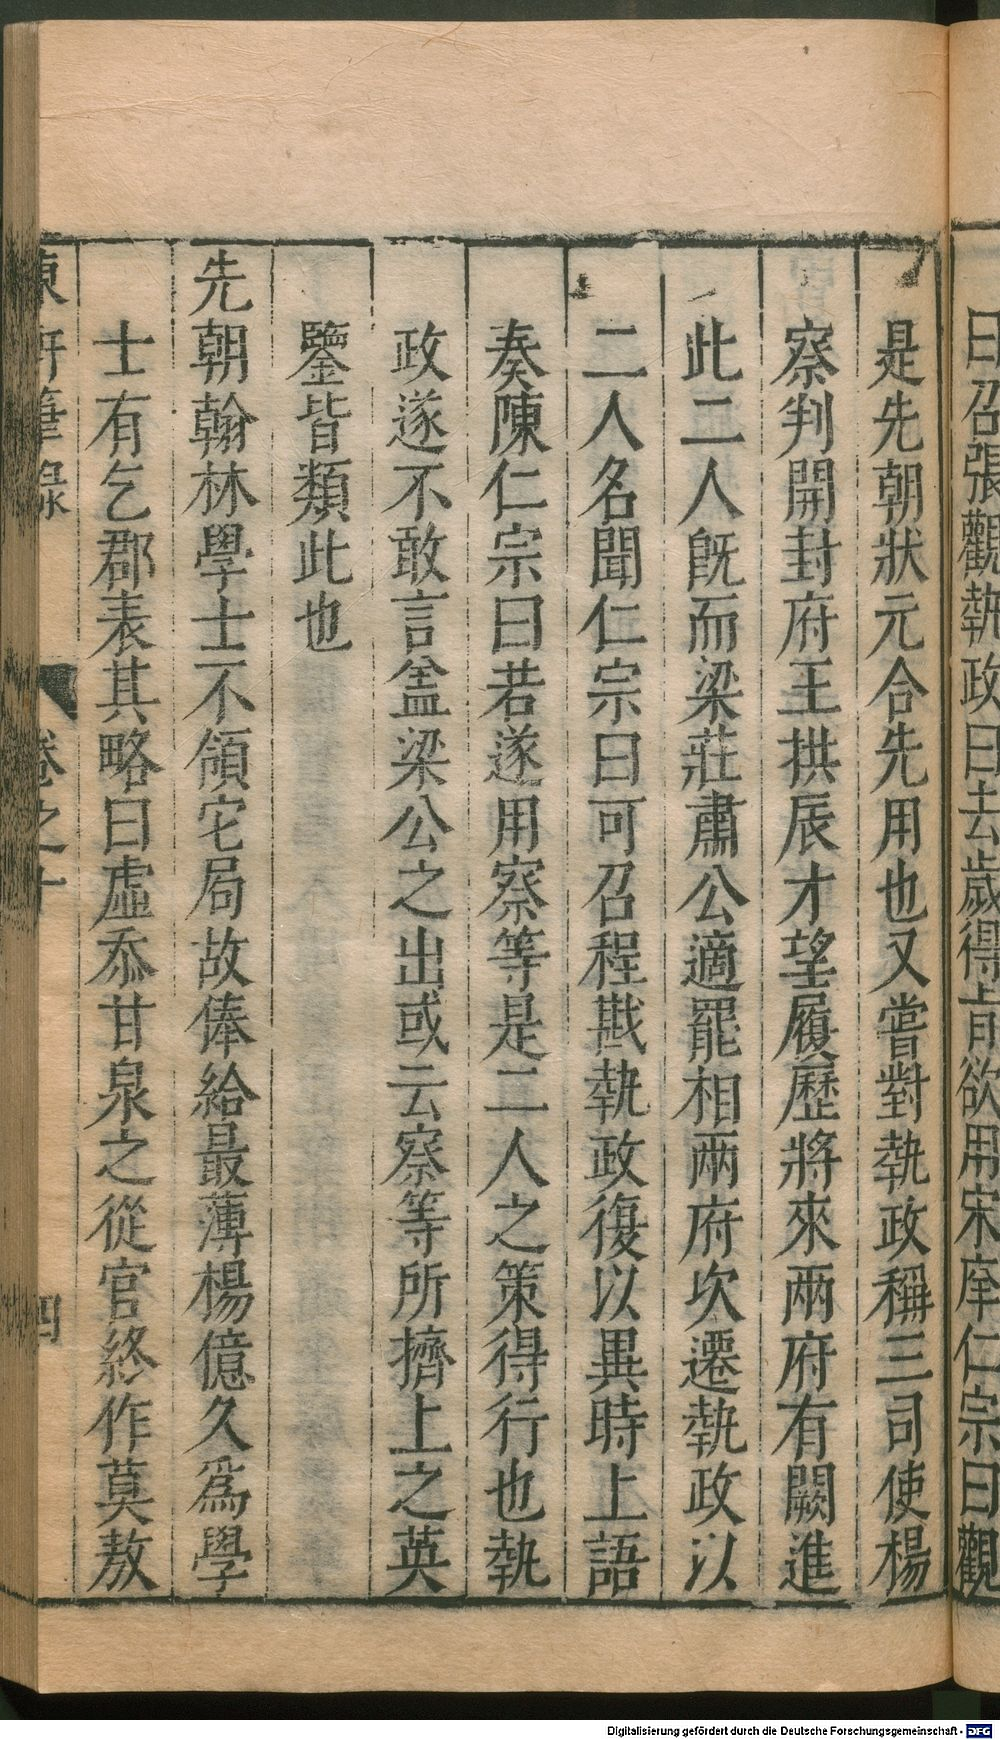 曰召張觀執政曰去歲得旨欲用宋庠仁宗曰觀
是先朝狀元合先用也又嘗對執政稱三司使楊
察判開封府王拱辰才望履歷將來兩府有闕進
此二人旣而梁莊肅公適罷相兩府次遷執政以
二人名聞仁宗曰可召程戡執政復以異時上語
奏陳仁宗曰若遂用察等是二人之策得行也執
政遂不敢言盖梁公之出或云察等所擠上之英
鑒皆類此也
先朝翰林學士不領它局故俸給最薄楊億久爲學
士有乞郡表其略曰虛忝甘泉之從官終作莫敖
東軒筆錄 卷之十 四
Digitalisierung gefördert durch die Deutsche Forschungsgemeinschaft - DFG